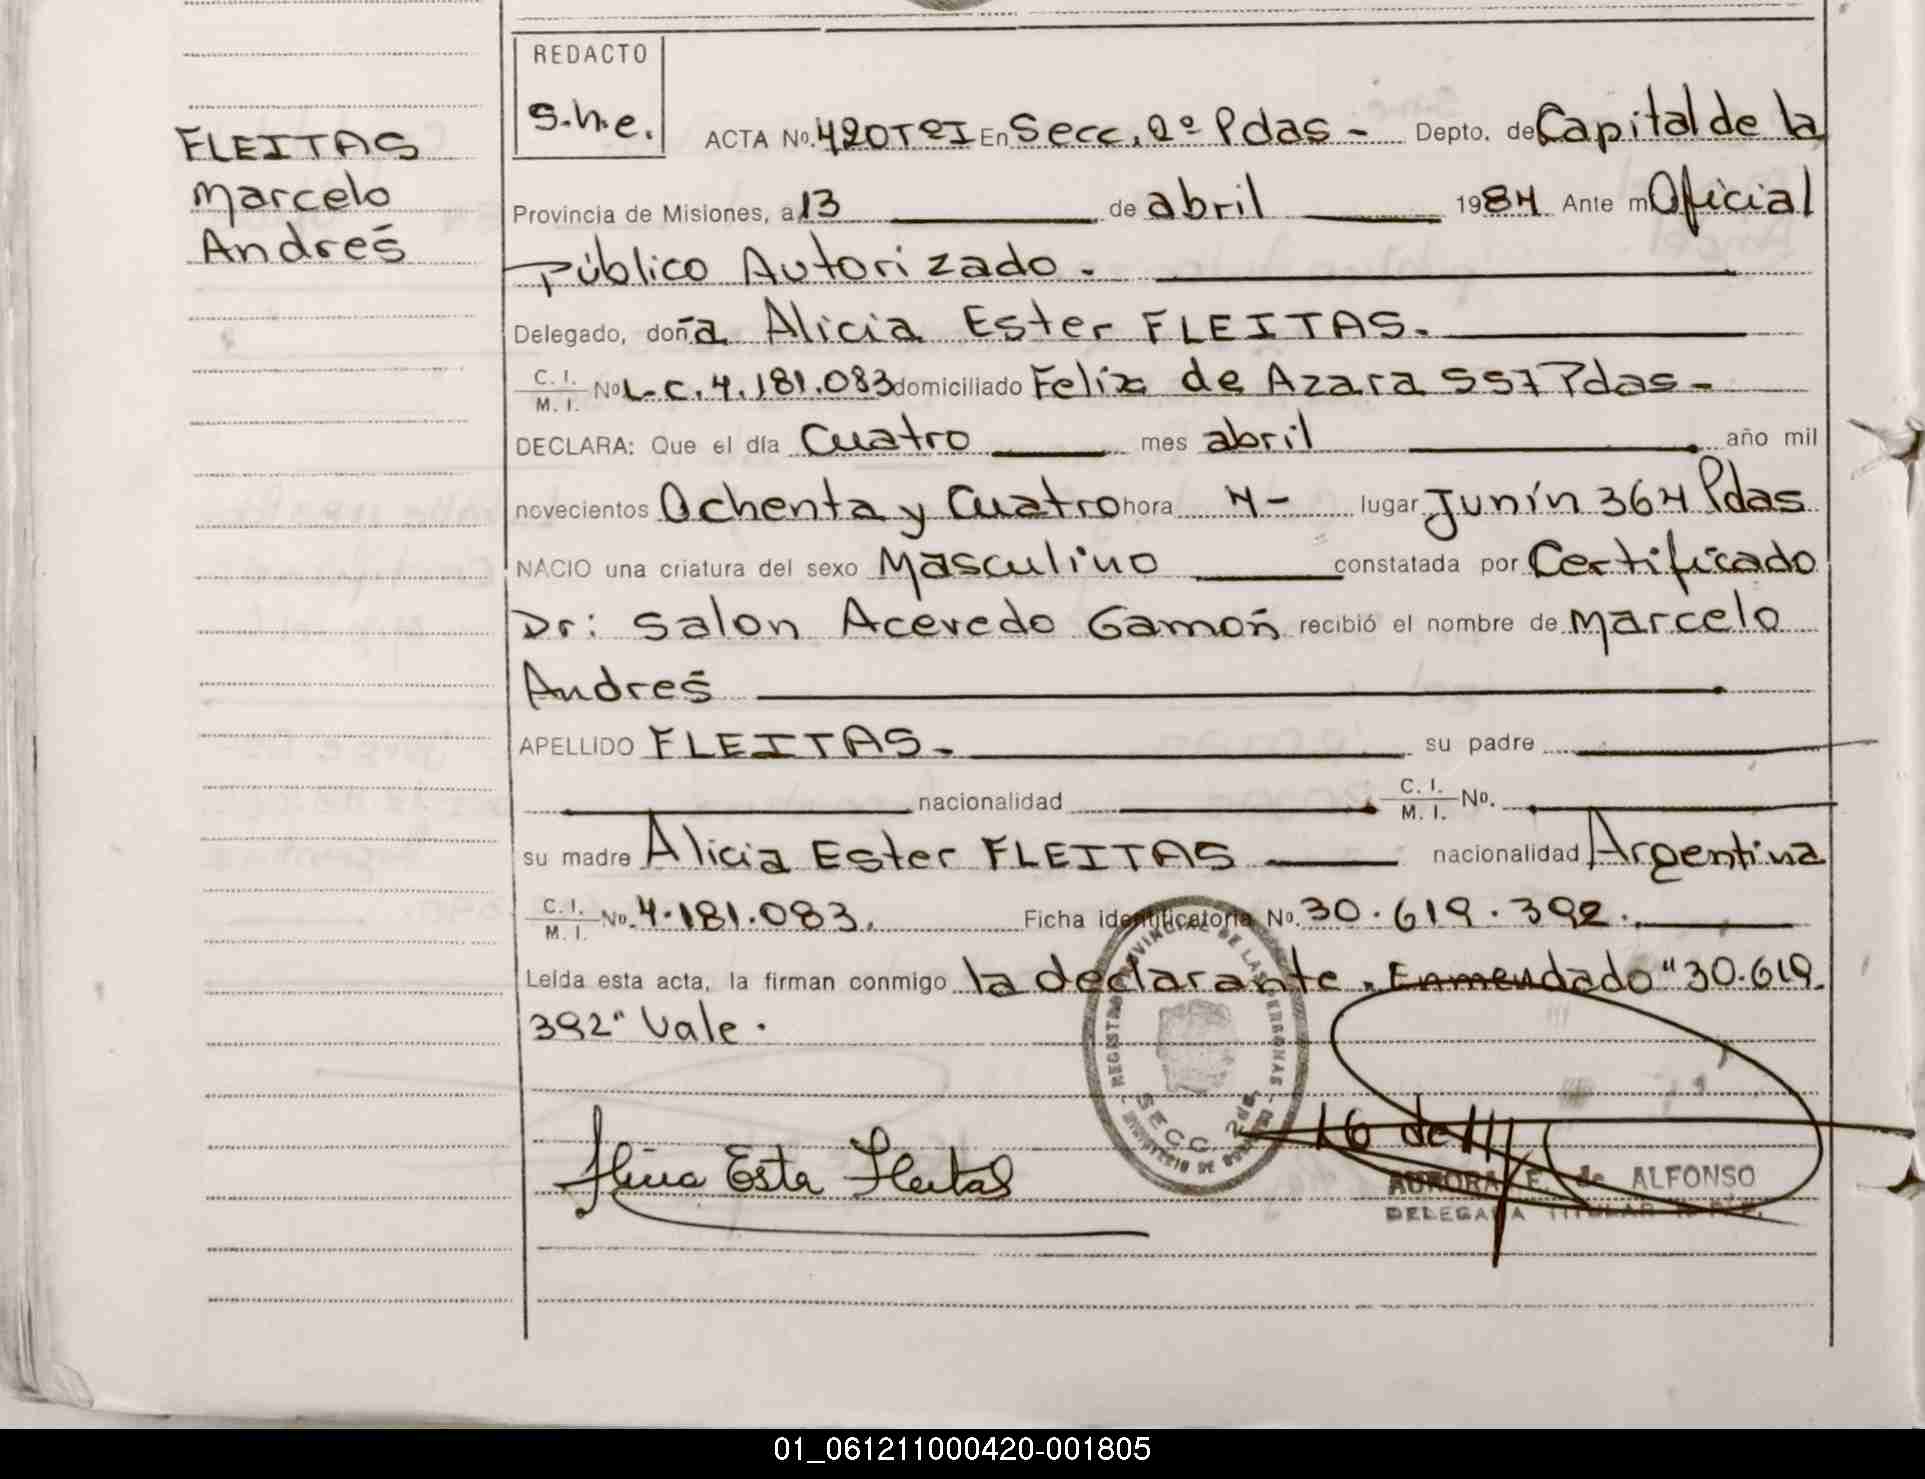 REDACTO
S.h.e.
FLEITAS
Marcelo
Andrés
ACTA Nº. 420TºI En Secc. 2º Pdas - Depto. de Capital de la
Provincia de Misiones, a 13 de abril 1984 Ante mi Oficial
Público Autorizado.
Delegado, doña Alicia Ester FLEITAS.
C. I. M. I. Nº L.C. 4.181.083 domiciliado Felix de Azara 557 Pdas -
DECLARA: Que el día Cuatro mes abril año mil
novecientos Ochenta y Cuatro hora 4 - lugar Junín 364 Pdas
NACIO una criatura del sexo Masculino constatada por Certificado
Dr: Salon Acevedo Gamón recibió el nombre de Marcelo
Andrés
APELLIDO FLEITAS. su padre
nacionalidad C. I. M. I. Nº.
su madre Alicia Ester FLEITAS nacionalidad Argentina
C. I. M. I. Nº. 4.181.083. Ficha identificatoria Nº. 30.619.392.
Leída esta acta, la firman conmigo la declarante. Enmendado "30.619.
392" Vale.
REGISTRO PROVINCIAL DE LAS PERSONAS
SECC. 2da.
MINISTERIO DE GOBIERNO
Alicia Ester Fleitas
16 de
AURORA E. de ALFONSO
DELEGADA TITULAR
01_061211000420-001805